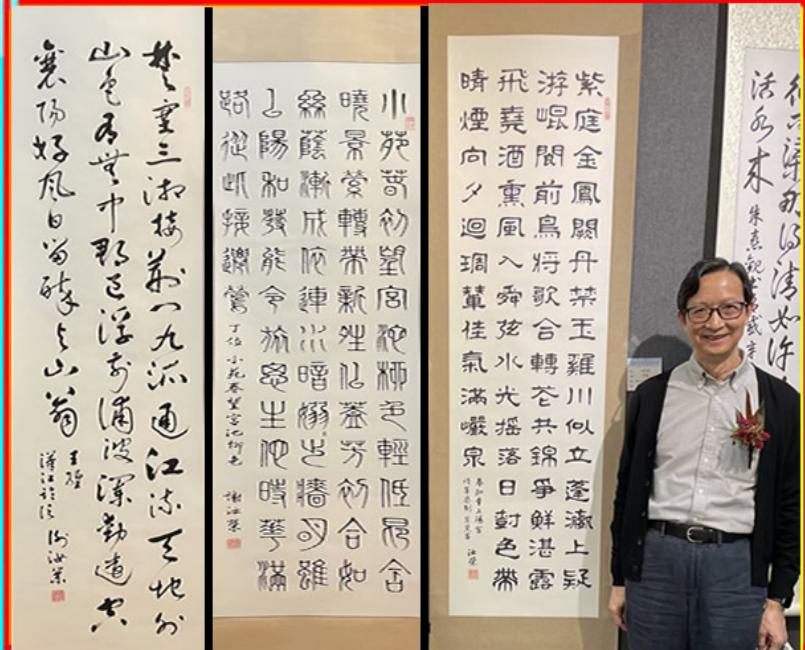 楚塞三湘接荊門九派通江流天地外
山色有無中郡邑浮前浦波瀾動遠空
襄陽好風日留醉與山翁
王維
漢江臨泛 謝汝榮
小苑春初望宮池柳色輕低昂含
曉景縈轉帶新晴似蓋芳初合如
絲蔭漸成依連水暗嫋出牆明雖
以陽和發能令旅思生他時花滿
路從此接遷鶯
丁位 小苑春望宮池柳色
謝汝榮
紫庭金鳳闕丹禁玉雞川似立蓬瀛上疑
游崐閬前鳥將歌合轉花共錦爭鮮湛露
飛堯酒熏風入舜弦水光搖落日樹色帶
晴煙向夕迴琱輦佳氣滿巖泉
奉和幸上陽宮
汝榮
渠那得清如許
活水來
朱熹觀書有感